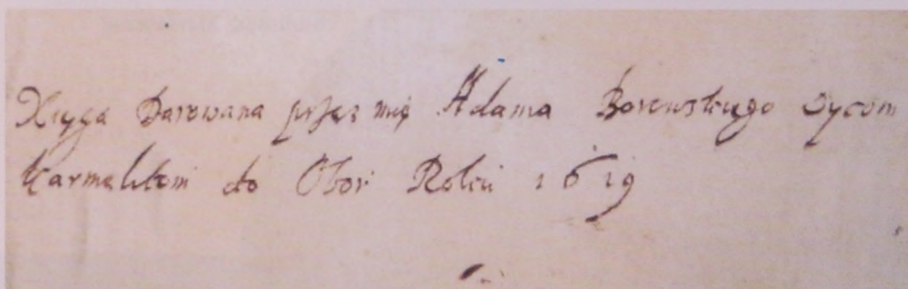 Xięga Darowana przez mię Adama Borewskiego Oycom
Karmelitom do Obor Roku 1619